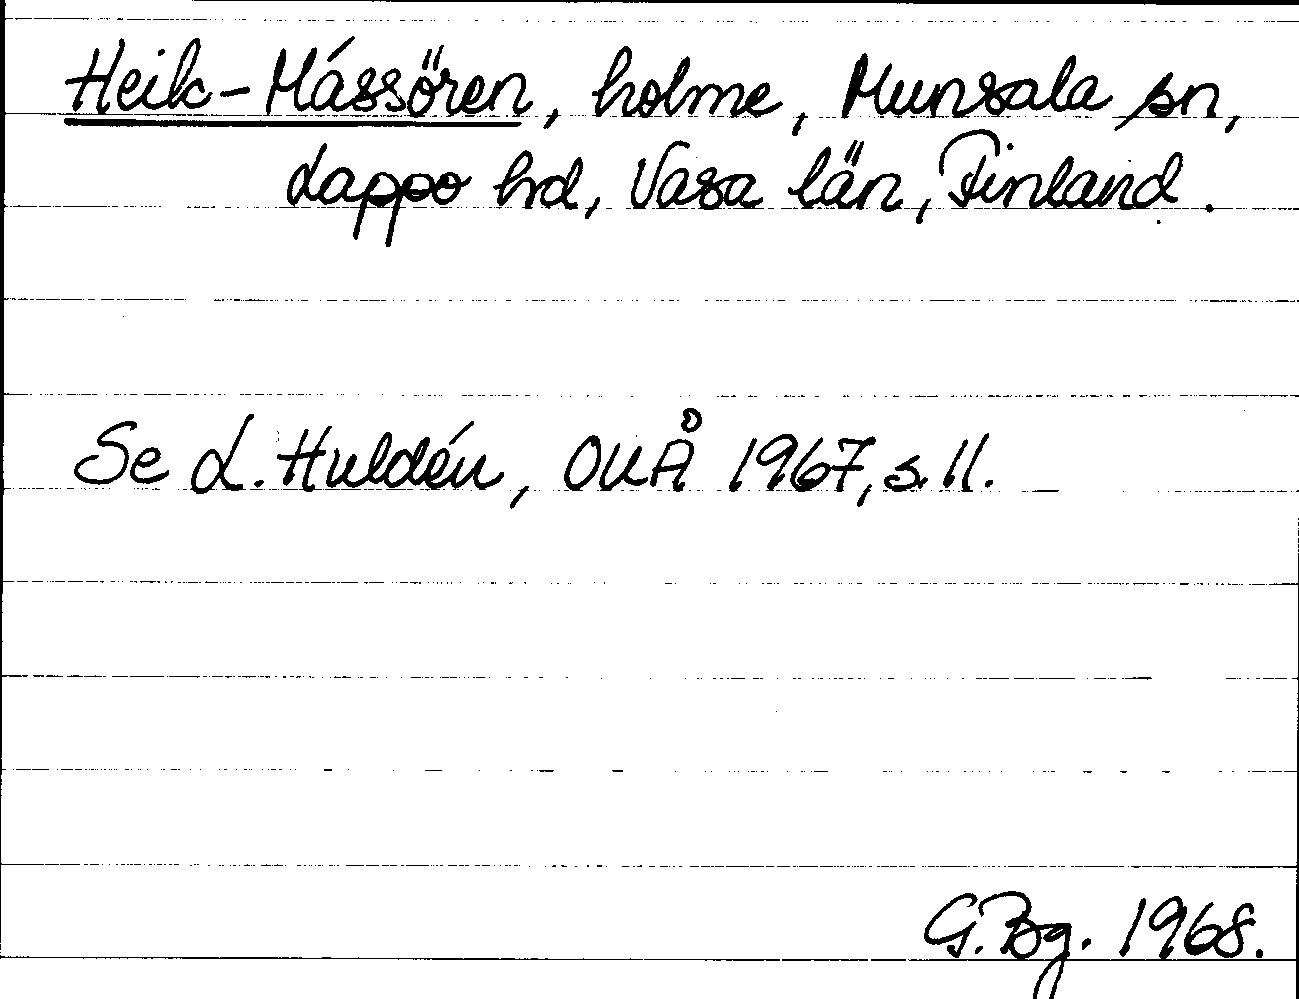 Heik-Mássören, holme, Munsala sn,
Lappo hd, Vasa län, Finland.
Se L. Huldén, OUÅ 1967, s. 11.
G. Bg. 1968.